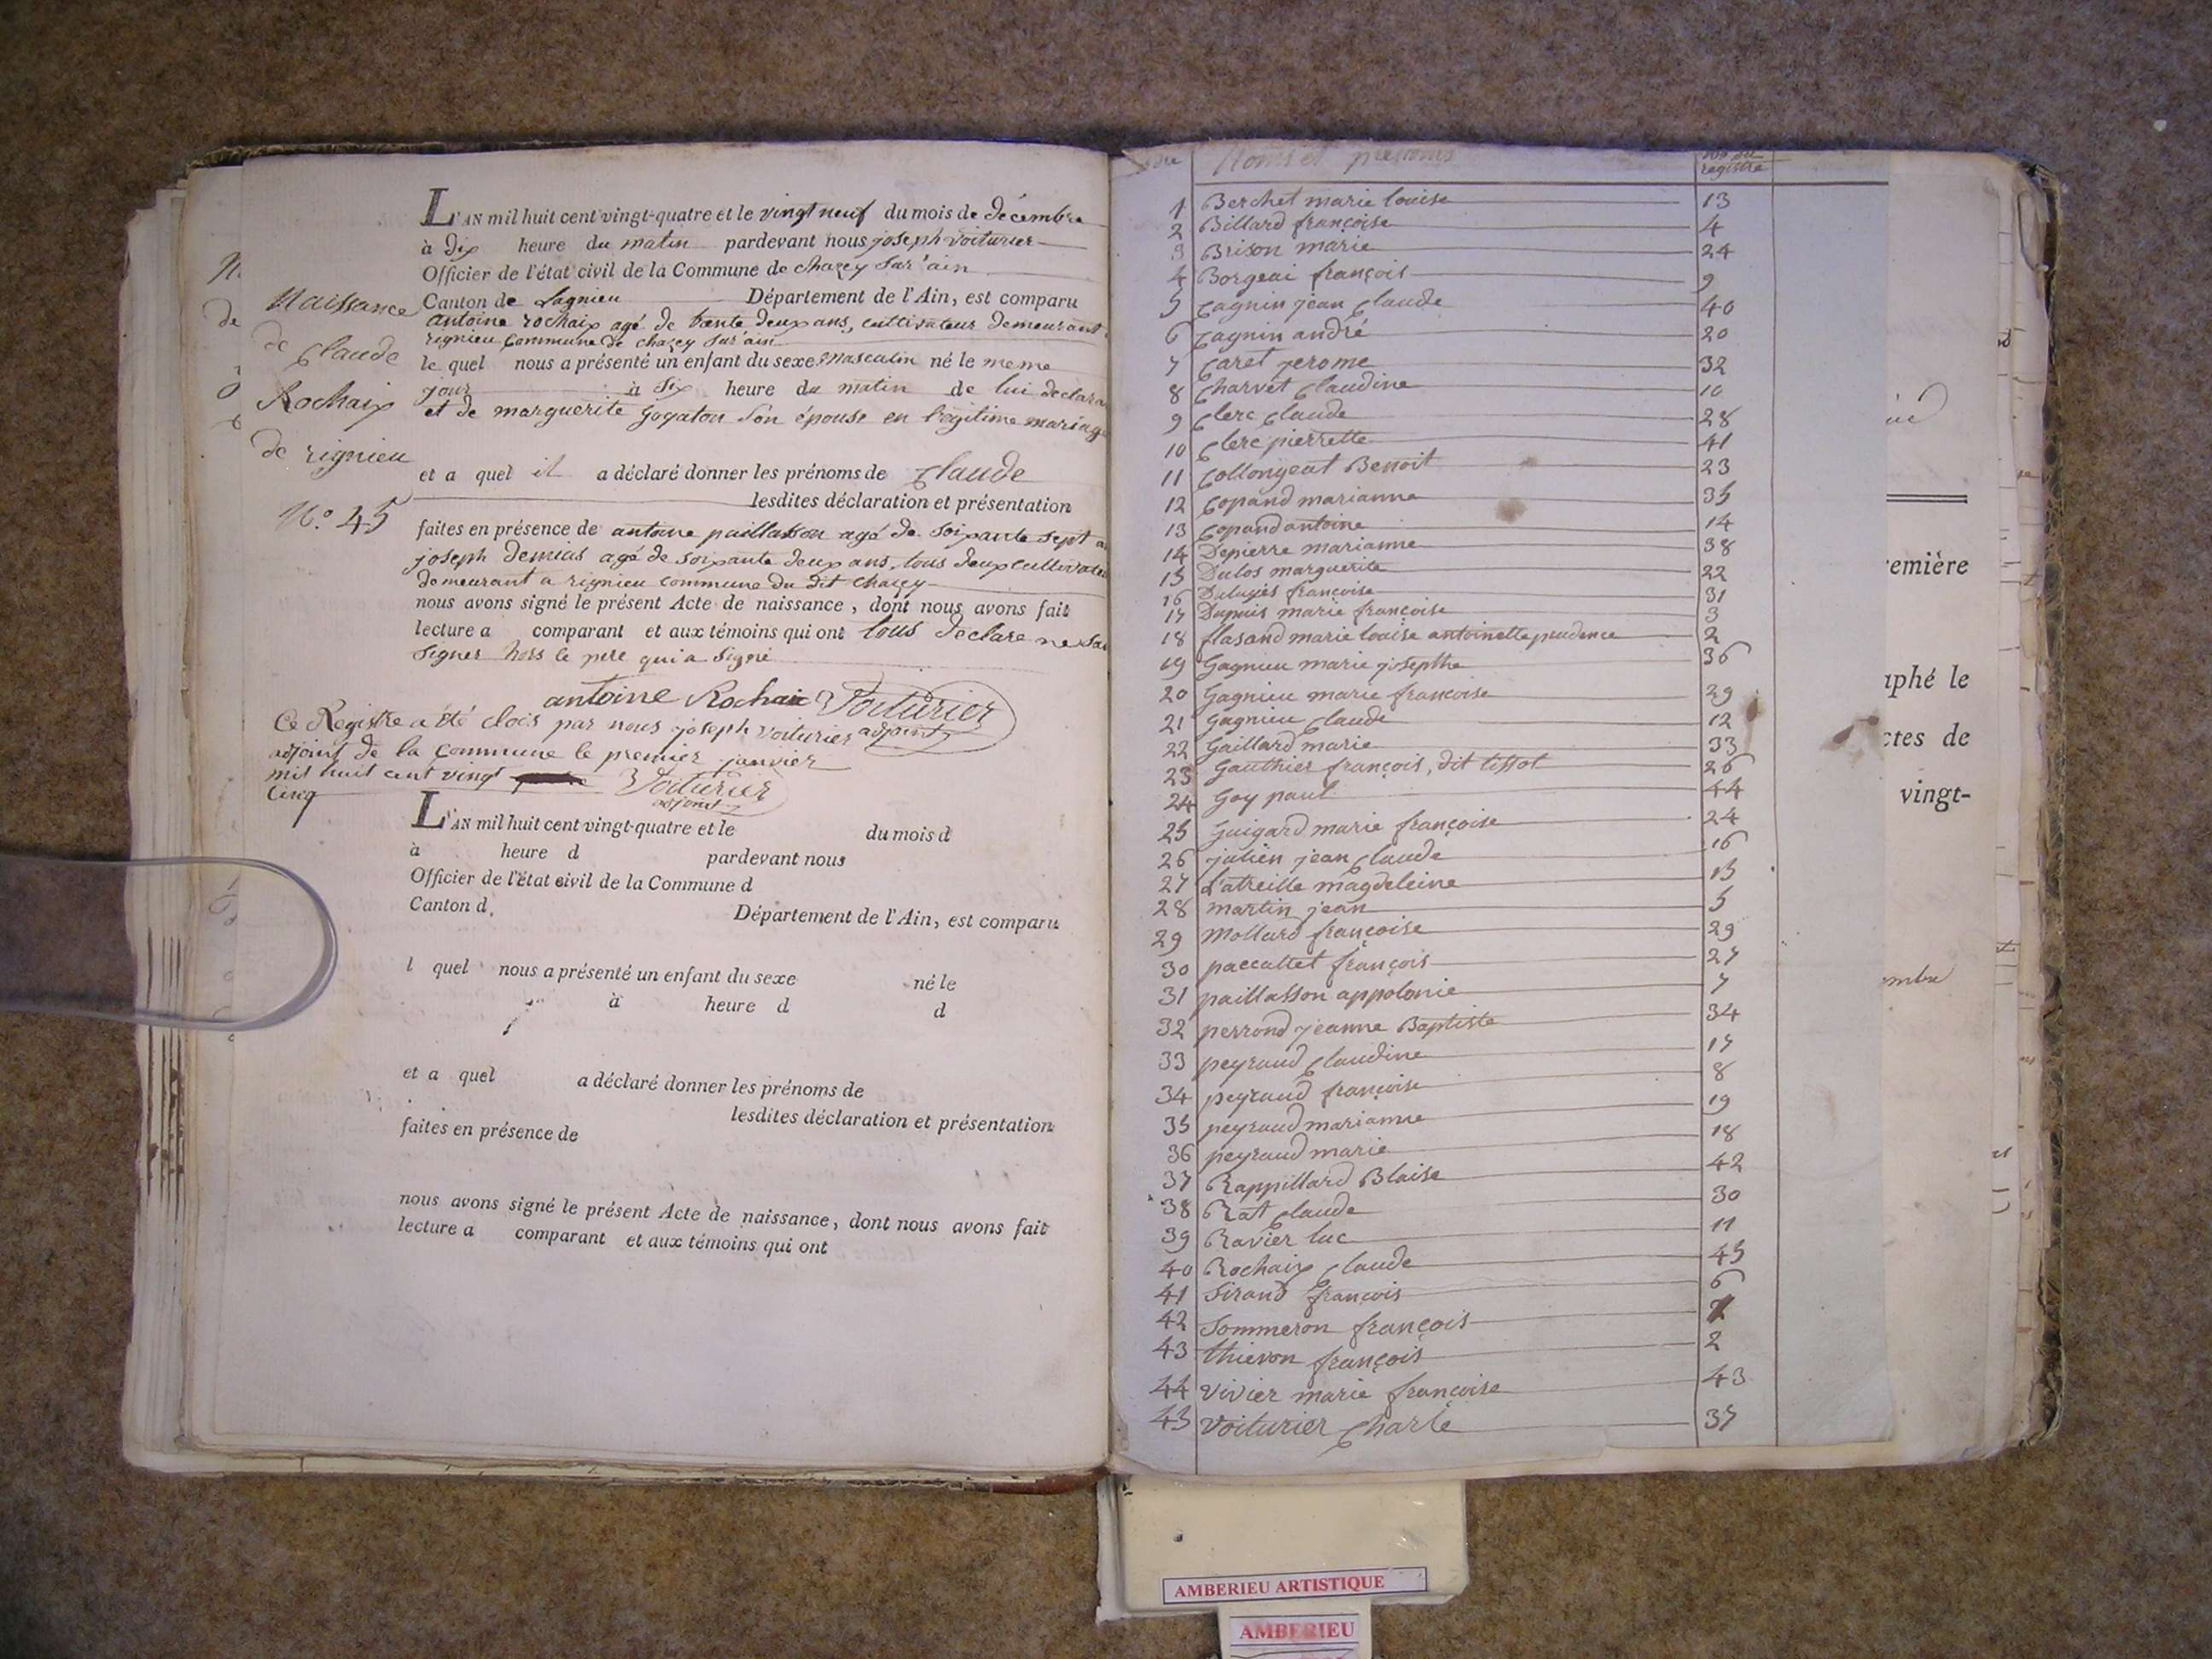 L'AN mil huit cent vingt-quatre et le vingt neuf du mois de décembre
à dix heure du matin pardevant nous joseph voiturier
Officier de l'état civil de la Commune de chazey sur'ain
Canton de Lagnieu Département de l'Ain, est comparu
antoine rochaix agé de trente deux ans, cultivateur demeurant
rignieu commune de chazey sur'ain
le quel nous a présenté un enfant du sexe masculin né le meme
jour à six heure du matin de lui declara
et de marguerite gogatou son épouse en légitime mariage
et a quel il a déclaré donner les prénoms de Claude
lesdites déclaration et présentation
faites en présence de antoine paillasson agé de soixante sept
joseph demias agé de soixante deux ans, tous deux cultivate
demeurant a rignieu commune du dit chazey
nous avons signé le présent Acte de naissance, dont nous avons fait
lecture a comparant et aux témoins qui ont tous declare ne sa
signer hors le pere qui a signé
Naissance
de Claude
Rochaix
de rignieu
N.º 45
antoine Rochaix Voiturier
adjoint
Ce Registre a été clois par nous joseph voiturier
adjoint de la commune le premier janvier
mil huit cent vingt
cinq
Voiturier
adjoint
L'AN mil huit cent vingt-quatre et le du mois d
à heure d pardevant nous
Officier de l'état civil de la Commune d
Canton d Département de l'Ain, est comparu
l quel nous a présenté un enfant du sexe né le
à heure d d
et a quel a déclaré donner les prénoms de
lesdites déclaration et présentation
faites en présence de
nous avons signé le présent Acte de naissance, dont nous avons fait
lecture a comparant et aux témoins qui ont
Noms et prénoms registre
1 Berchet marie louise 13
2 Billard françoise 4
3 Brison marie 24
4 Borgeai françois 9
5 Cagnin jean Claude 40
6 Cagnin andré 20
7 Caret jerome 32
8 Charvet Claudine 10
9 Clerc Claude 28
10 Clerc pierrette 41
11 Collongeat Benoit 23
12 Copand marianne 35
13 Copand antoine 14
14 Depierre marianne 38
15 Dulos marguerite 22
16 françoise 31
17 Dupuis marie françoise 3
18 flasand marie louise antoinette prudence 2
19 Gagnieu marie josepthe 36
20 Gagnieu marie francoise 29
21 Gagnieu Claude 12
22 Gaillard marie 33
23 Gauthier françois, dit tissot 26
24 Goy paul 44
25 Guigard marie françoise 24
26 julien jean Claude 16
27 L'atreille magdeleine 15
28 martin jean 5
29 Mollard françoise 29
30 paccallet françois 27
31 paillasson appolonie 7
32 perrond jeanne Baptiste 34
33 peyraud Claudine 17
34 peyraud françoise 8
35 peyraud marianne 19
36 peyraud marie 18
37 Rappillard Blaise 42
38 Rat Claude 30
39 Ravier luc 11
40 Rochaix Claude 45
41 Sirand françois 6
42 Sommeron françois
43 thievon françois 2
44 vivier marie françoise 43
45 voiturier Charle 37
emière
aphé le
ctes de
vingt-
AMBERIEU ARTISTIQUE
AMBERIEU